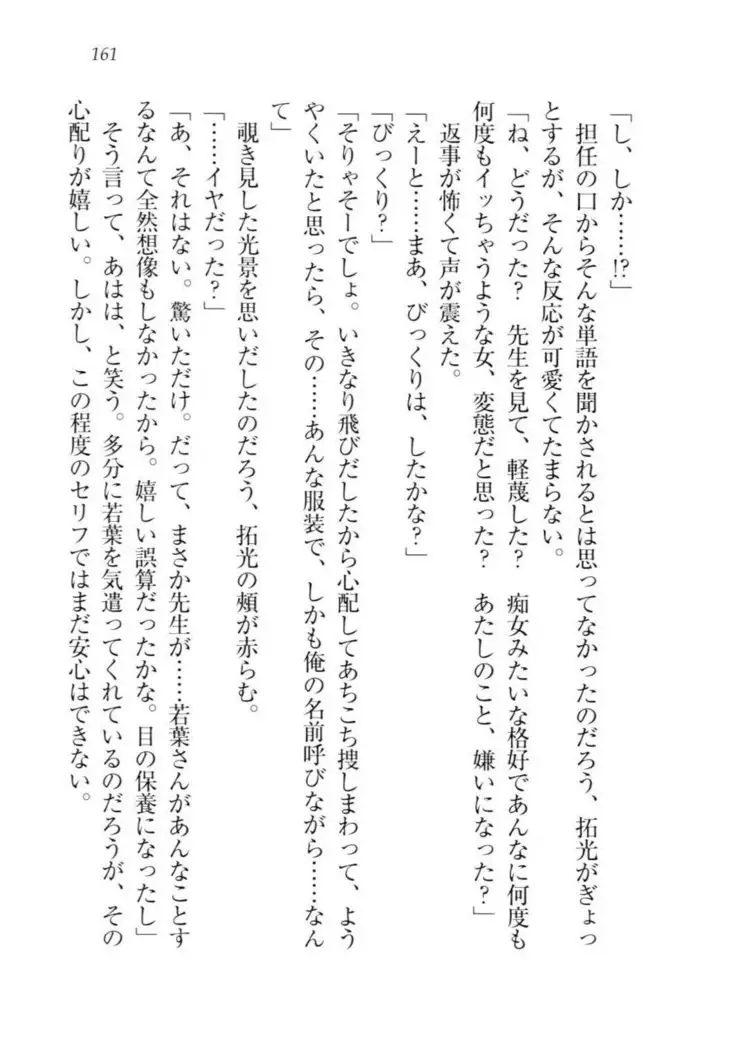 161
「し、しか……!?」
担任の口からそんな単語を聞かされるとは思ってなかったのだろう、拓光がぎょっ
とするが、そんな反応が可愛くてたまらない。
「ね、どうだった？　先生を見て、軽蔑した？　痴女みたいな格好であんなに何度も
何度もイッちゃうような女、変態だと思った？　あたしのこと、嫌いになった？」
返事が怖くて声が震えた。
「えーと……まあ、びっくりは、したかな？」
「びっくり？」
「そりゃそーでしょ。いきなり飛びだしたから心配してあちこち捜しまわって、よう
やくいたと思ったら、その……あんな服装で、しかも俺の名前呼びながら……なん
て」
覗き見した光景を思いだしたのだろう、拓光の頬が赤らむ。
「……イヤだった？」
「あ、それはない。驚いただけ。だって、まさか先生が……若葉さんがあんなことす
るなんて全然想像もしなかったから。嬉しい誤算だったかな。目の保養になったし」
そう言って、あはは、と笑う。多分に若葉を気遣ってくれているのだろうが、その
心配りが嬉しい。しかし、この程度のセリフではまだ安心はできない。